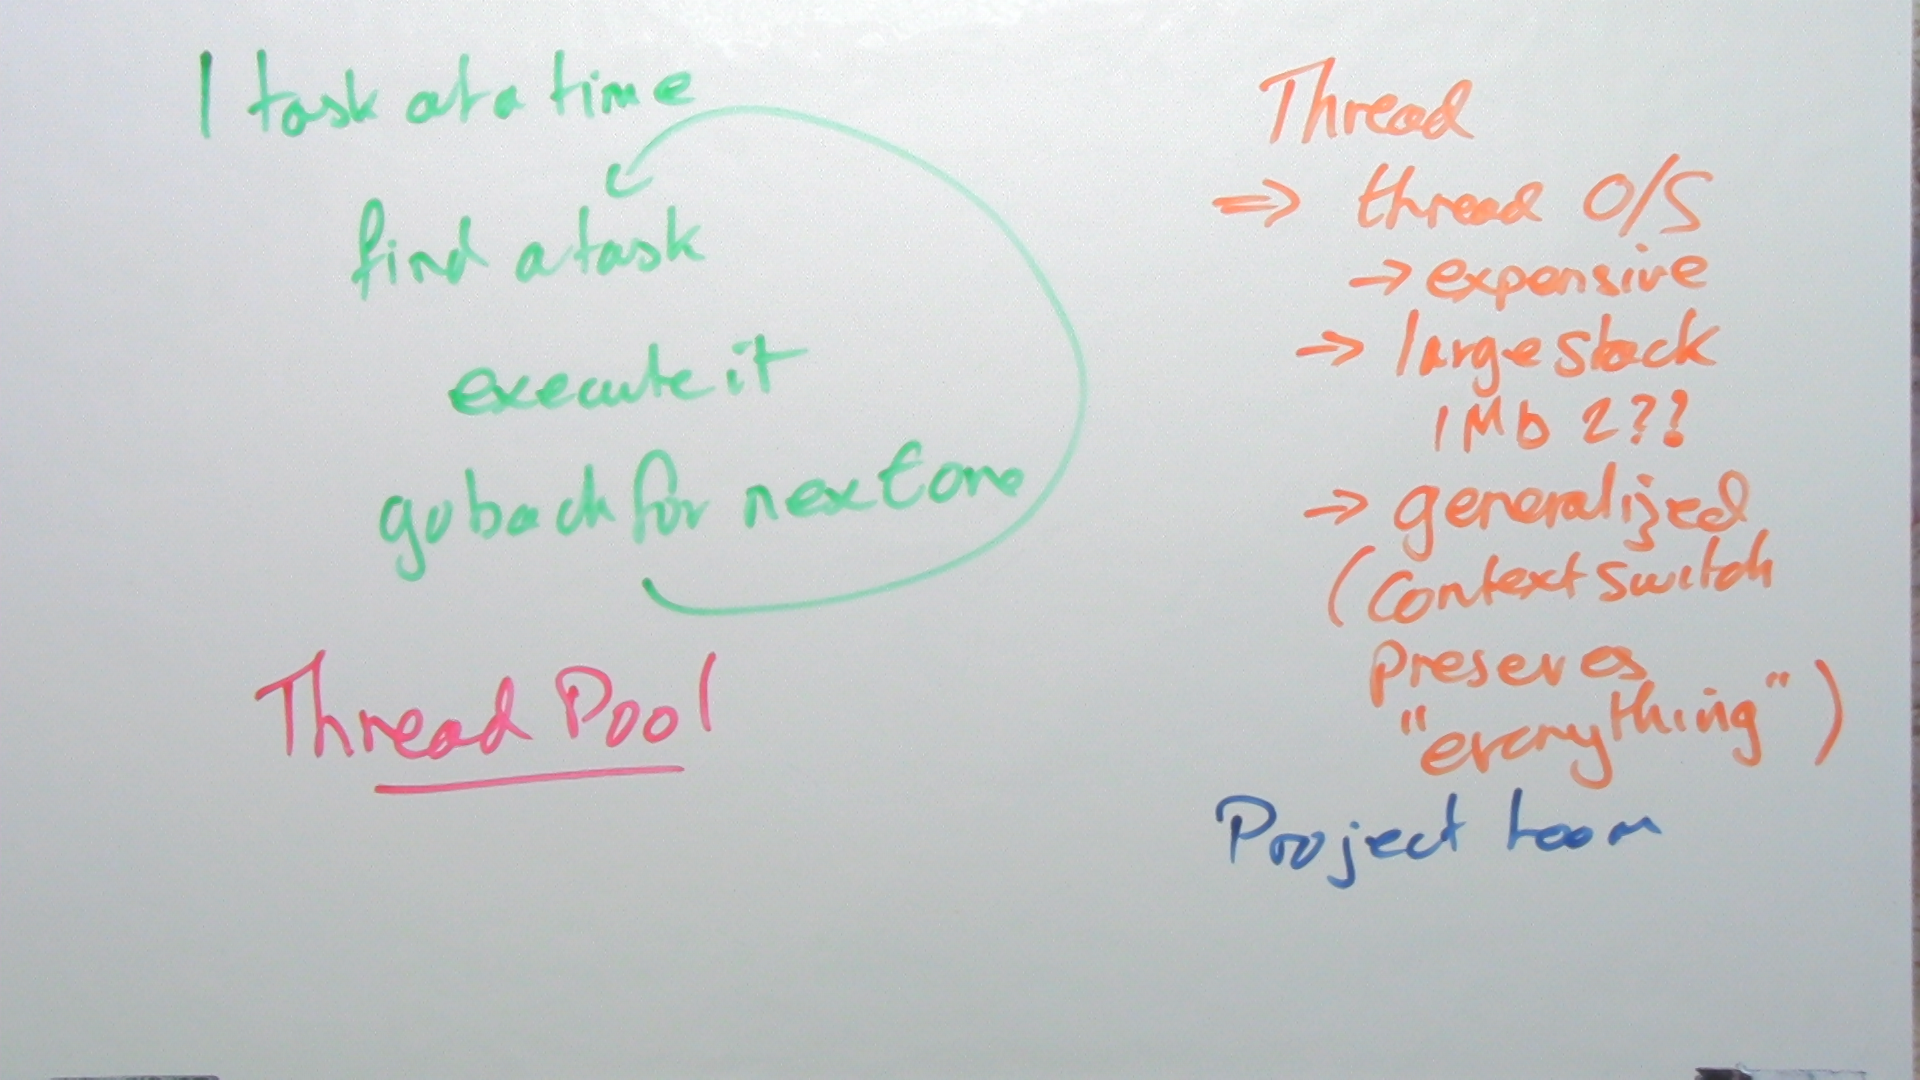 1 task at a time
find a task
execute it
go back for next one
Thread Pool
Thread
⇒ thread O/S
→ expensive
→ large stack
1Mb 2??
→ generalized
(context switch
preserves
"everything")
Project Loom